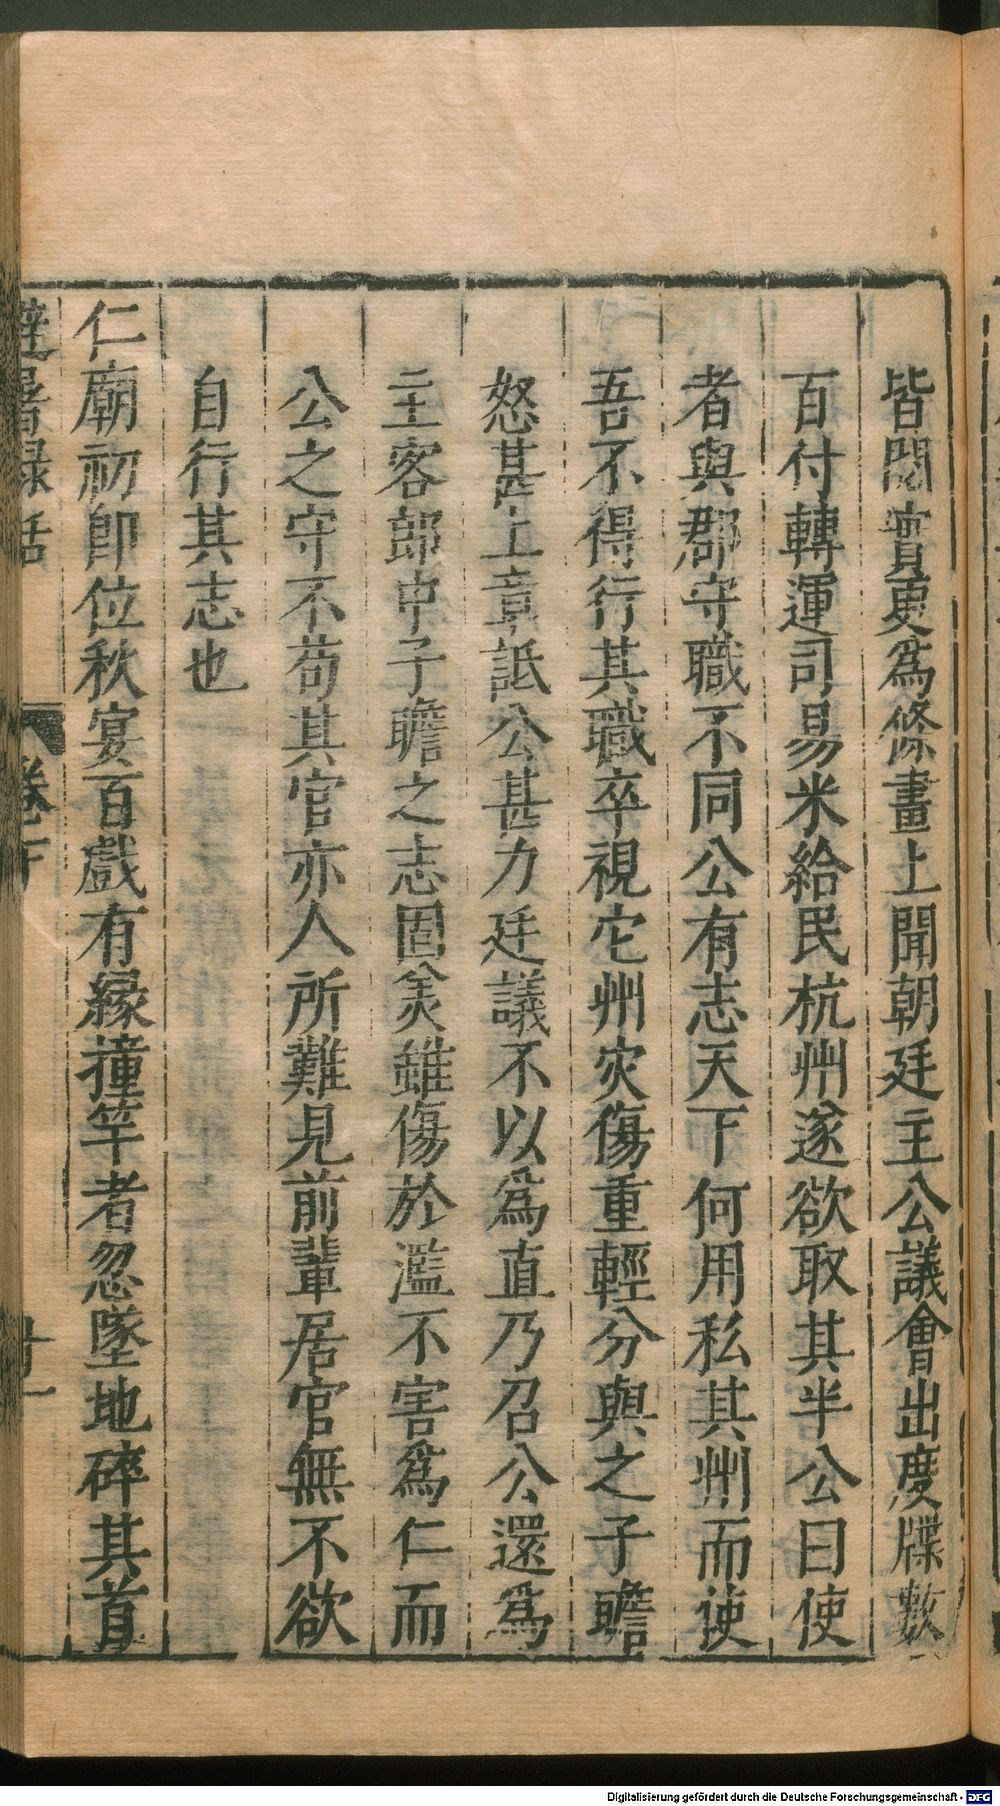 皆閱實更爲條畫上聞朝廷主公議會出度牒數
百付轉運司易米給民杭州遂欲取其半公曰使
者與郡守職不同公有志天下何用私其州而使
吾不得行其職卒視它州灾傷重輕分與之子瞻
怒甚上章詆公甚力廷議不以爲直乃召公還爲
主客郎中子瞻之志固美雖傷於濫不害爲仁而
公之守不苟其官亦人所難見前輩居官無不欲
自行其志也
仁廟初卽位秋宴百戲有緣撞竿者忽墜地碎其首
避暑錄話 卷下
Digitalisierung gefördert durch die Deutsche Forschungsgemeinschaft - DFG